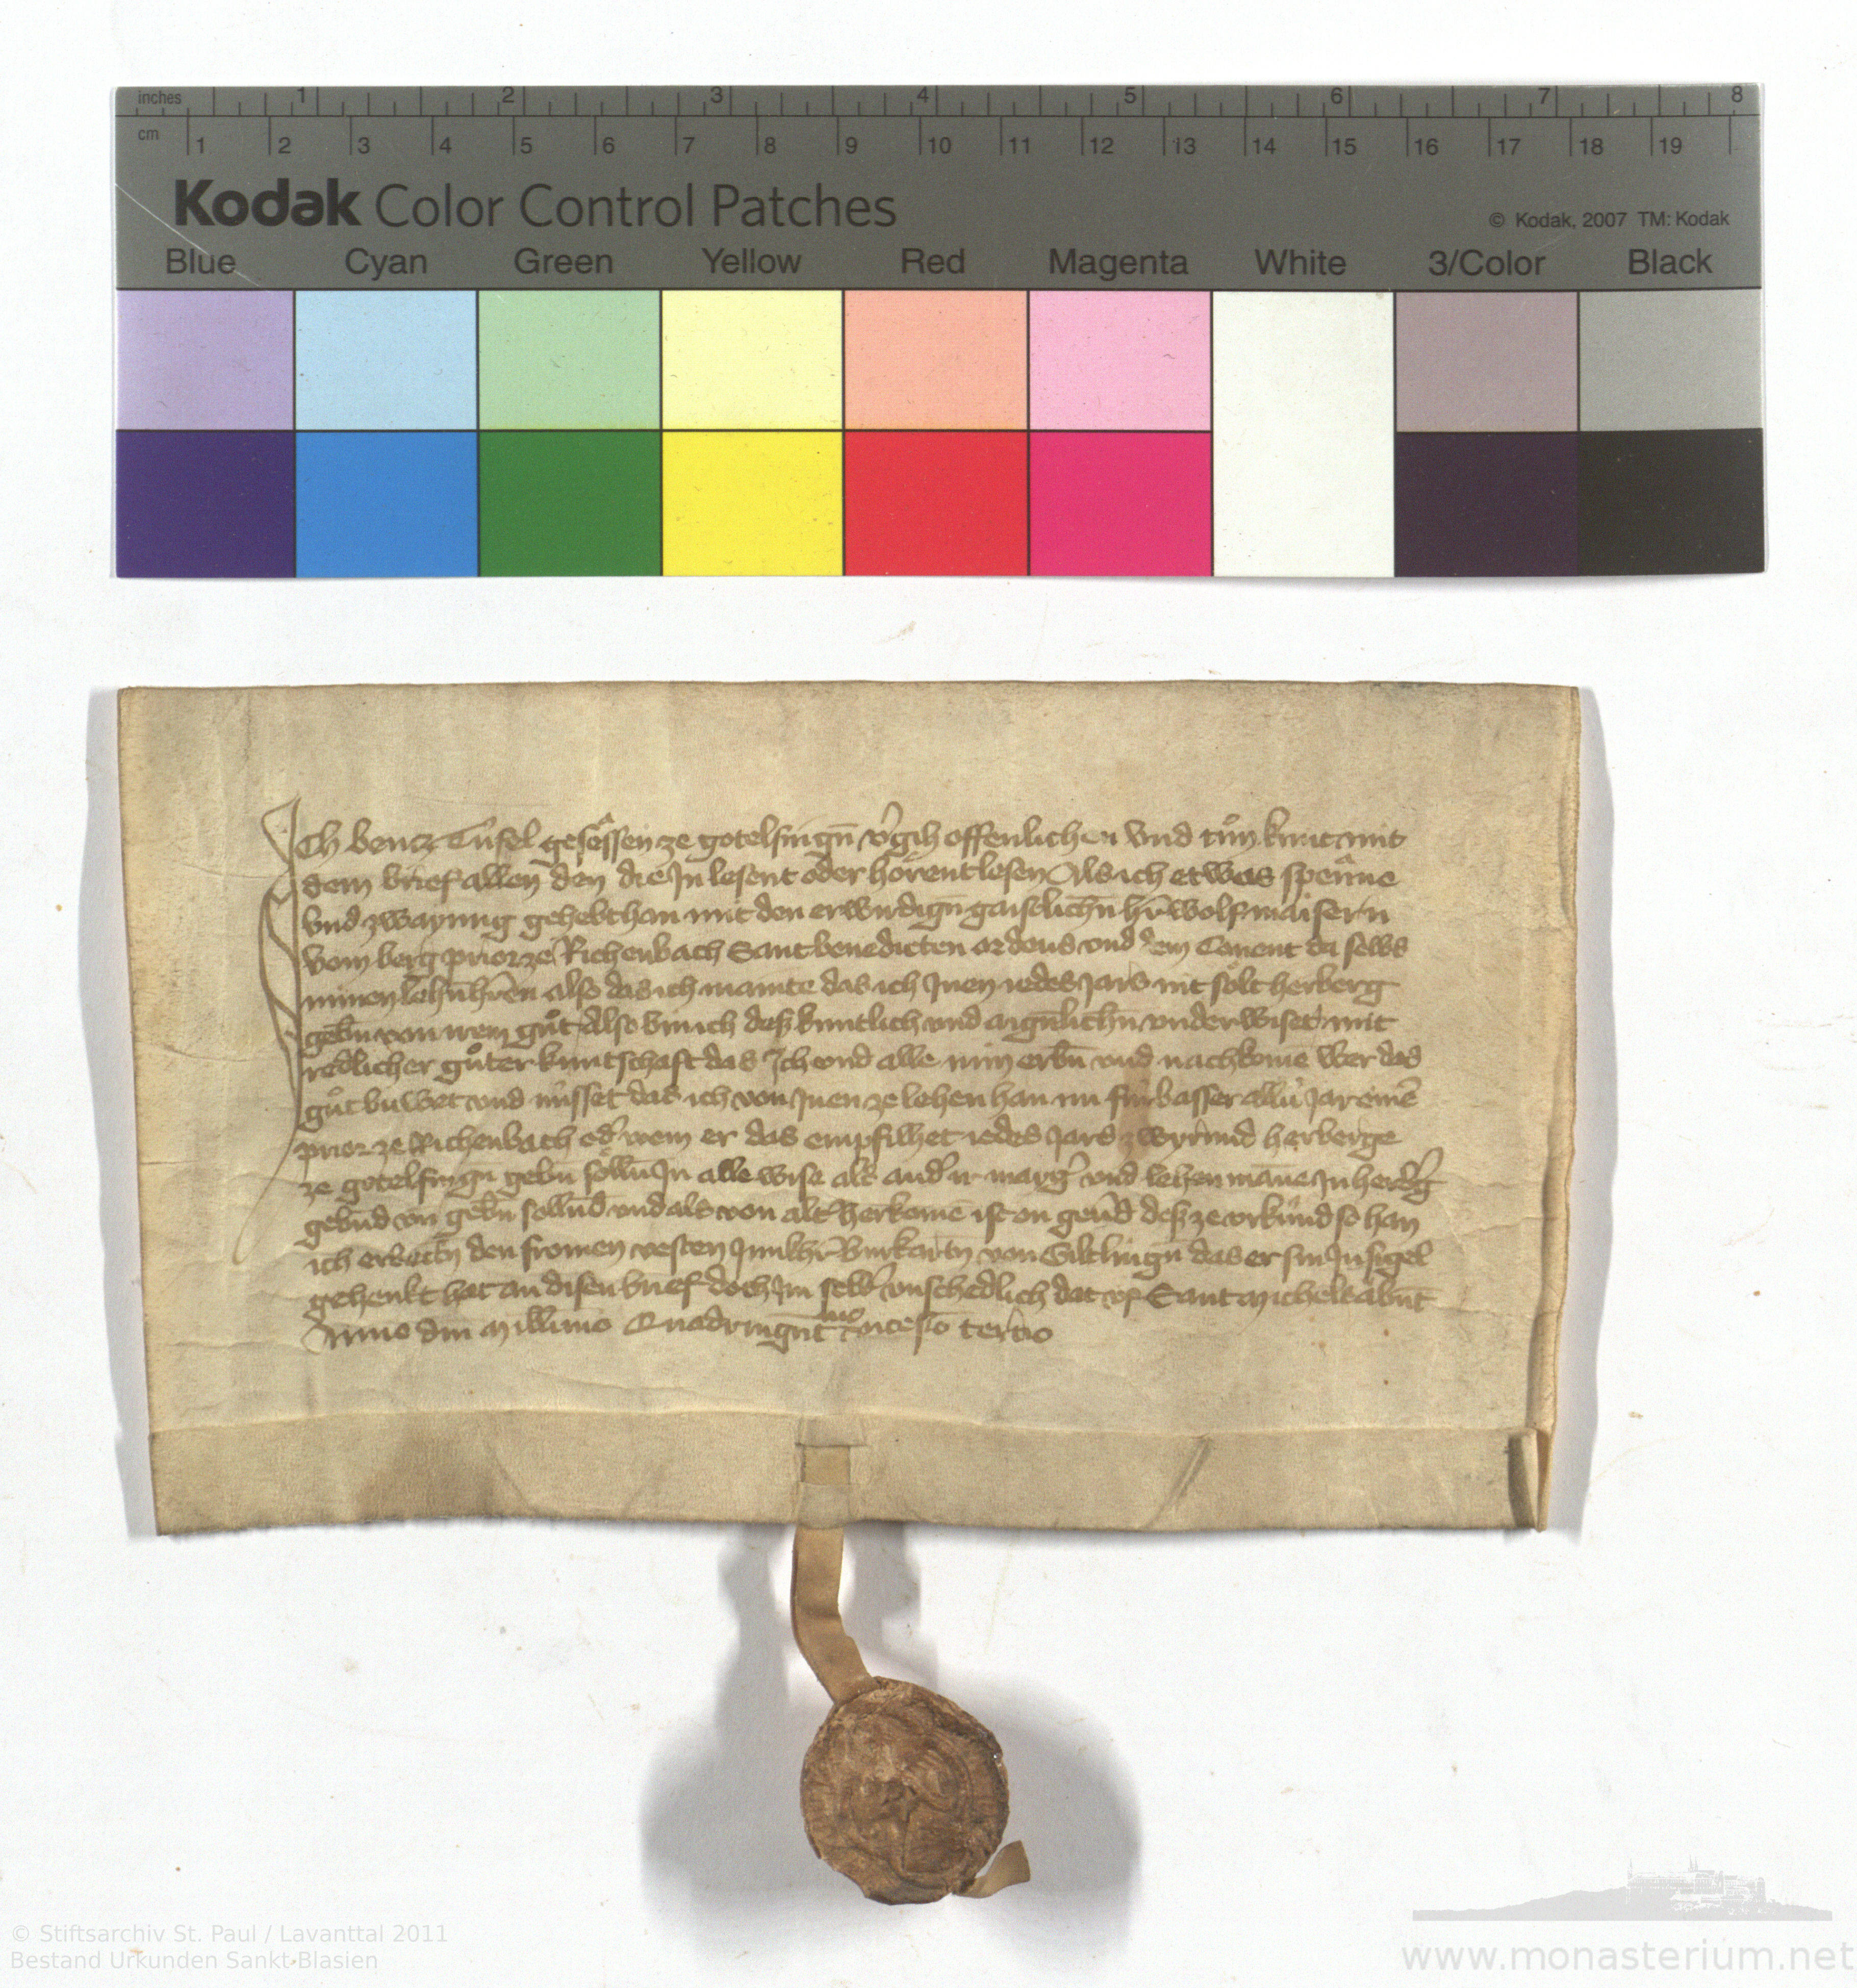 inches 1 2 3 4 5 6 7 8
cm 1 2 3 4 5 6 7 8 9 10 11 12 13 14 15 16 17 18 19
Kodak Color Control Patches
© Kodak, 2007 TM: Kodak
Blue Cyan Green Yellow Red Magenta White 3/Color Black
Ich bencz Tufel gesässen ze gotelfingn̄ v'gih offenlichen vnd tůn kunt mit
dem brief allen den die Jn lesent oder hörent lesen Als ich etwas spenne
vnd zwayung gehebt han mit den erwirdign gaistlichn̄ hr̄n wolf maisern
vom berg prior ze Richenbach Sant benedicten ordens vnd dem Conent da selbs
minen lehn̄hr̄en also das ich mainte das ich Jnen iedes Jars nit sölt herberg
gebn̄ von irem gůt Also bin ich des kuntlich vnd aign̄lichn̄ vnderwiset mit
redlicher gůter kuntschaft das Jch vnd alle min erbn̄ vnd nachkome wer das
gůt buwet vnd nüsset das ich von Jnen ze lehen han nu fürbasser allü Jar einē
prior ze Richenbach od' wem er das empfilhet iedes Jars zwyrund herberge
ze gotelfingn gebn sölln̄ Jn alle wise als and' ir mayg' vnd lehen māne Jn herb'g
gebn̄d vn̄ gebn̄ solln̄d vnd als von alt' herkomē ist on geu'd des ze vrkünd so han
ich erbettn̄ den fromen vesten Junkhr̄ Burkartn von Giltlingn̄ das er sin Jnsigel
gehenkt hat an disen brief doch Jm selb' vnschedlich dat vf Sant michels abn̄t
Anno dn̄i millimo Quadringn̄t mo vicesio tertio
© Stiftsarchiv St. Paul / Lavanttal 2011
Bestand Urkunden Sankt Blasien
www.monasterium.net